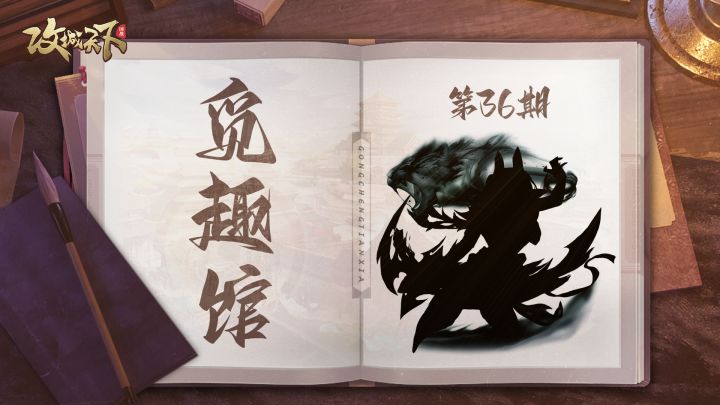 攻城天下
觅趣馆
GONGCHENGTIANXIA
第36期